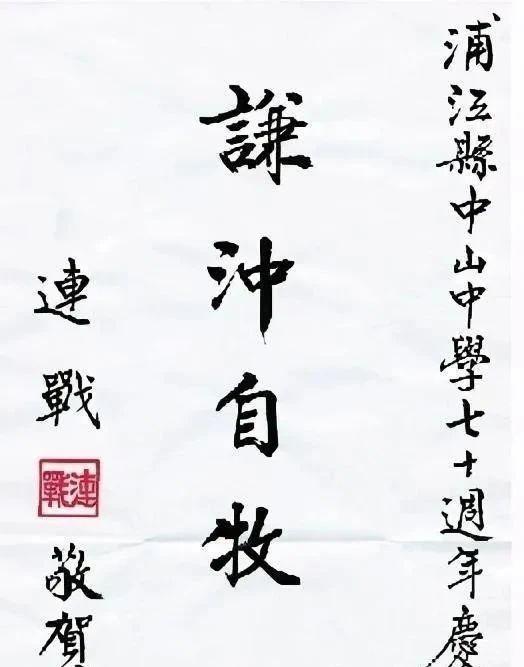 浦江縣中山中學七十週年慶
謙沖自牧
連戰
連戰
敬賀